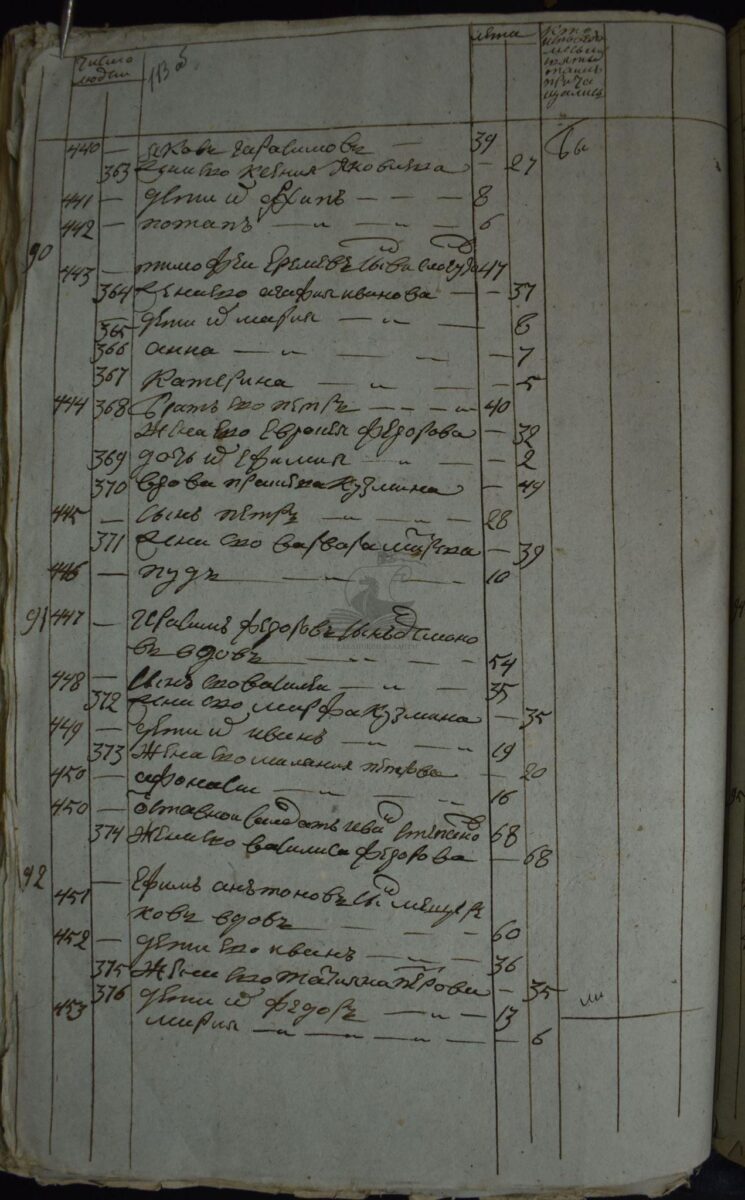 число людеи
113 об
лета
440 — яковъ гарасимовъ — 39
363 жена ево ксения яковлева — 27
441 — дети их архипъ — — — 8
442 — потапъ — — — 6
90
443 — тимофеи еремеевъ 47
364 жена ево агафия иванова — — 37
365 дети их мария — — 8
366 анна — — — 7
367 катерина — — — 5
444 368 братъ ево петръ — — — 40
жена ево феодорова — 32
369 дочь их ефимия — — 2
370 вдова кузмина — 49
445 — сынъ петръ — — — 28
371 жена ево варвара — 39
446 — пудъ — — — 10
91 447 — герасимъ феодоровъ
въ вдовъ — — — 54
448 — сынъ ево василеи — — 35
372 жена ево марфа кузмина — 35
449 — дети их иванъ — — 19
373 жена ево малания петрова — 20
450 — афонасеи — — — 16
450 — отставнои салдатъ 68
374 жена ево василиса феодорова — 68
92
451 — ефимъ антоновъ
ковъ вдовъ — — — 60
452 — дети ево иванъ — — — 36
375 жена ево татияна петрова — 35
453 376 дети их феодоръ — — 13
мария — — — — 6